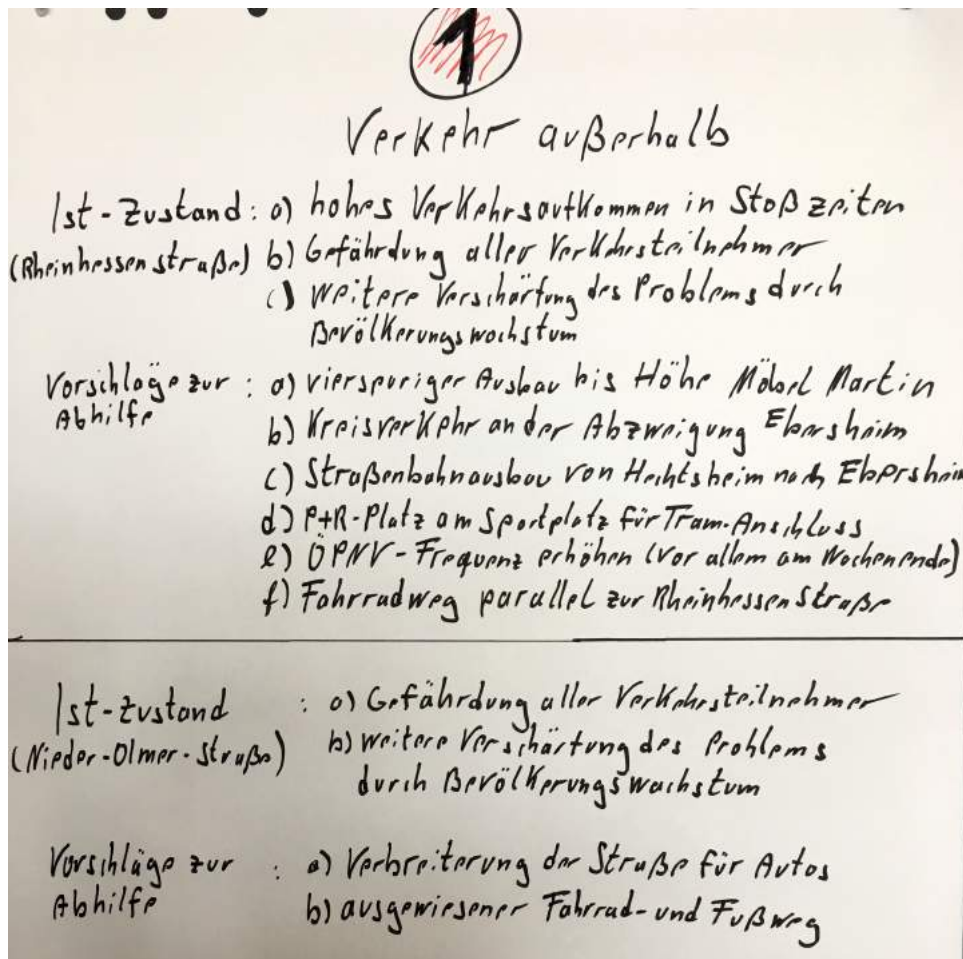 1
Verkehr außerhalb
Ist-Zustand: a) hohes Verkehrsaufkommen in Stoßzeiten
(Rheinhessenstraße) b) Gefährdung aller Verkehrsteilnehmer
c) weitere Verschärfung des Problems durch
Bevölkerungswachstum
Vorschläge zur : a) vierspuriger Ausbau bis Höhe Möbel Martin
Abhilfe b) Kreisverkehr an der Abzweigung Ebersheim
c) Straßenbahnausbau von Hechtsheim nach Ebersheim
d) P+R-Platz am Sportplatz für Tram-Anschluss
e) ÖPNV-Frequenz erhöhen (vor allem am Wochenende)
f) Fahrradweg parallel zur Rheinhessenstraße
Ist-Zustand : a) Gefährdung aller Verkehrsteilnehmer
(Nieder-Olmer-Straße) b) weitere Verschärfung des Problems
durch Bevölkerungswachstum
Vorschläge zur : a) Verbreiterung der Straße für Autos
Abhilfe b) ausgewiesener Fahrrad- und Fußweg